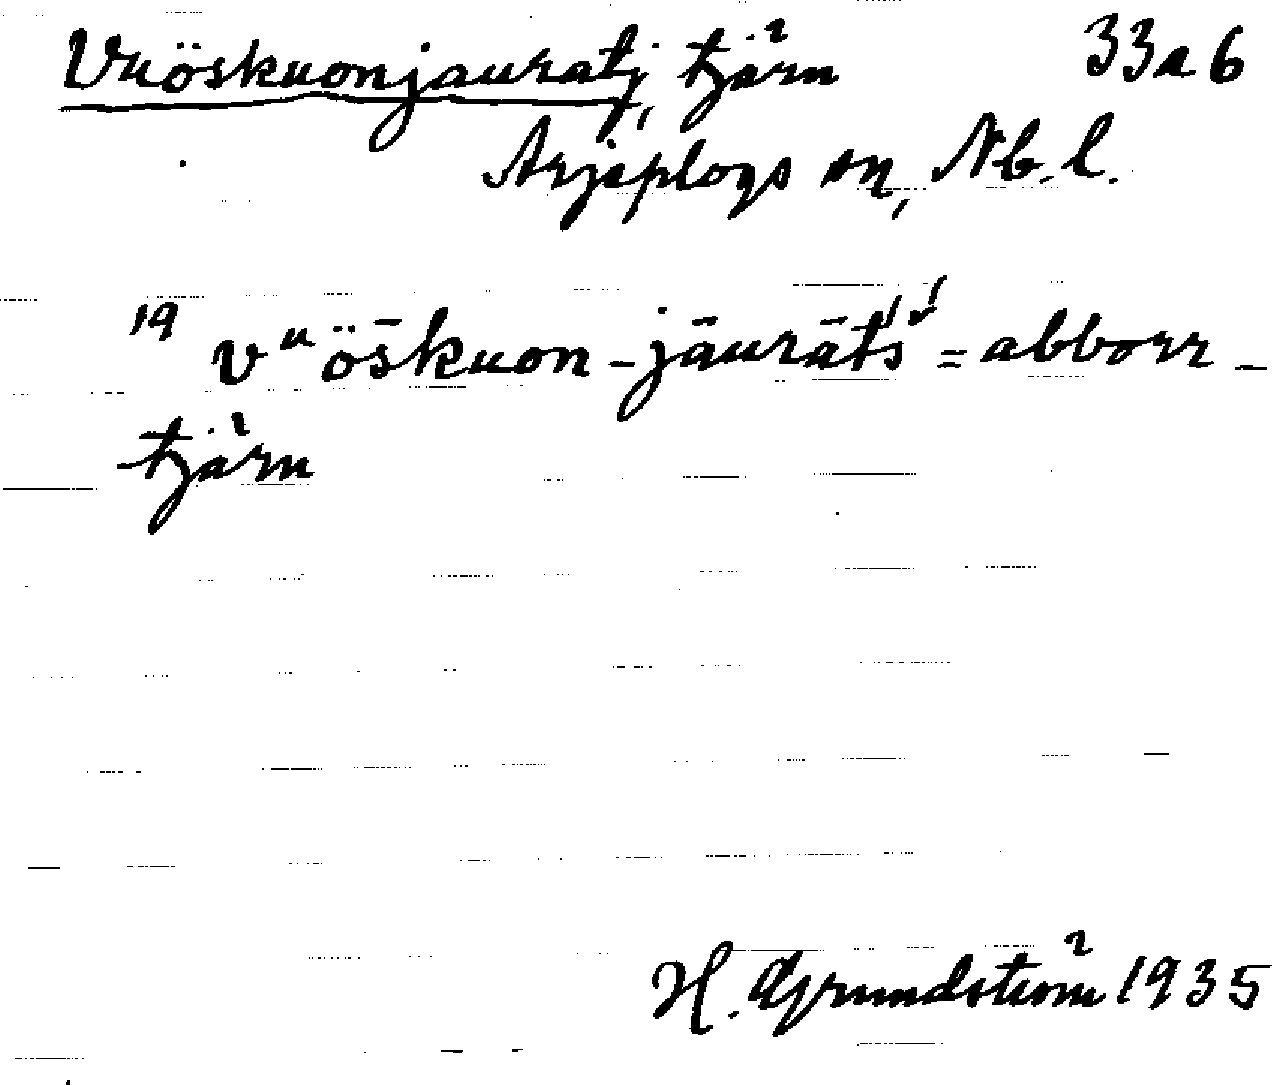 Vuöskuonjauratj, tjärn 33a6
Arjeplogs sn, Nb. l.
19 vᵘöš̄kuon-jāurāt́ś = abborr-
tjärn
H. Grundström 1935